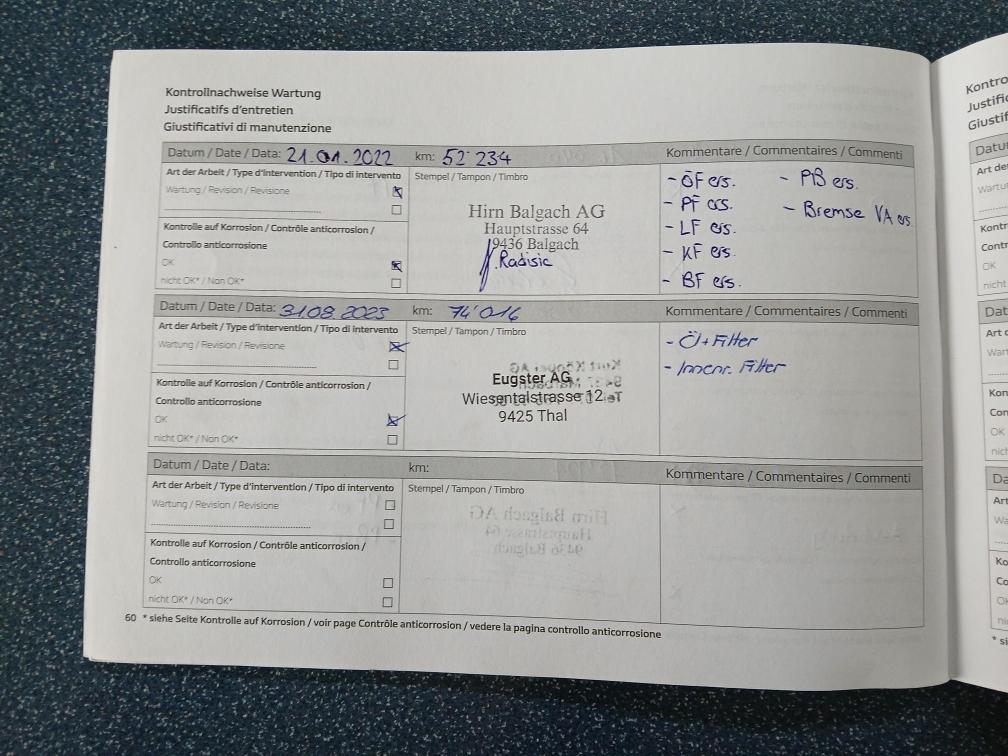 Kontrollnachweise Wartung
Justificatifs d'entretien
Giustificativi di manutenzione
Datum / Date / Data: 21.01.2022 km: 52'234 Kommentare / Commentaires / Commenti
Art der Arbeit / Type d'intervention / Tipo di intervento Stempel / Tampon / Timbro
Wartung / Revision / Revisione
Kontrolle auf Korrosion / Contrôle anticorrosion /
Controllo anticorrosione
OK
nicht OK* / Non OK*
Hirn Balgach AG
Hauptstrasse 64
9436 Balgach
Radisic
- ÖF ers. - PB ers.
- PF ers. - Bremse VA ers.
- LF ers.
- KF ers.
- BF ers.
Datum / Date / Data: 31.08.2023 km: 74'016 Kommentare / Commentaires / Commenti
Art der Arbeit / Type d'intervention / Tipo di intervento Stempel / Tampon / Timbro
Wartung / Revision / Revisione
Kontrolle auf Korrosion / Contrôle anticorrosion /
Controllo anticorrosione
OK
nicht OK* / Non OK*
Eugster AG
Wiesentalstrasse 12
9425 Thal
- Öl + Filter
- Innenr. Filter
Datum / Date / Data: km: Kommentare / Commentaires / Commenti
Art der Arbeit / Type d'intervention / Tipo di intervento Stempel / Tampon / Timbro
Wartung / Revision / Revisione
Kontrolle auf Korrosion / Contrôle anticorrosion /
Controllo anticorrosione
OK
nicht OK* / Non OK*
60 * siehe Seite Kontrolle auf Korrosion / voir page Contrôle anticorrosion / vedere la pagina controllo anticorrosione